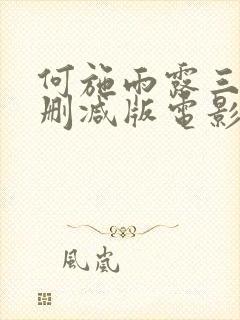 何施雨露三
删减版電影
風嵐